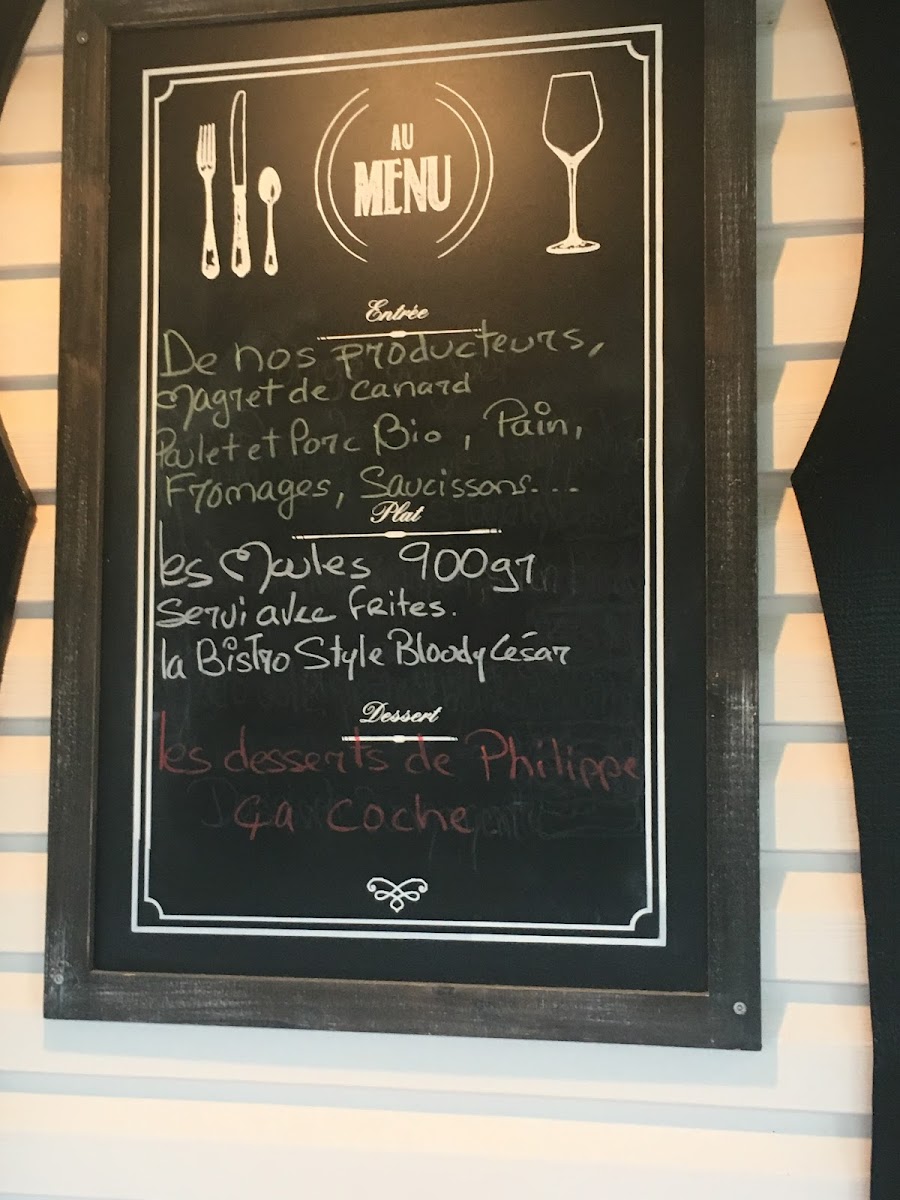 AU
MENU
Entrée
De nos producteurs,
Magret de canard
Poulet et Porc Bio, Pain,
Fromages, Saucissons...
Plat
les Moules 900gr
Servi avec frites.
la Bistro Style Bloody César
Dessert
les desserts de Philippe
ça coche